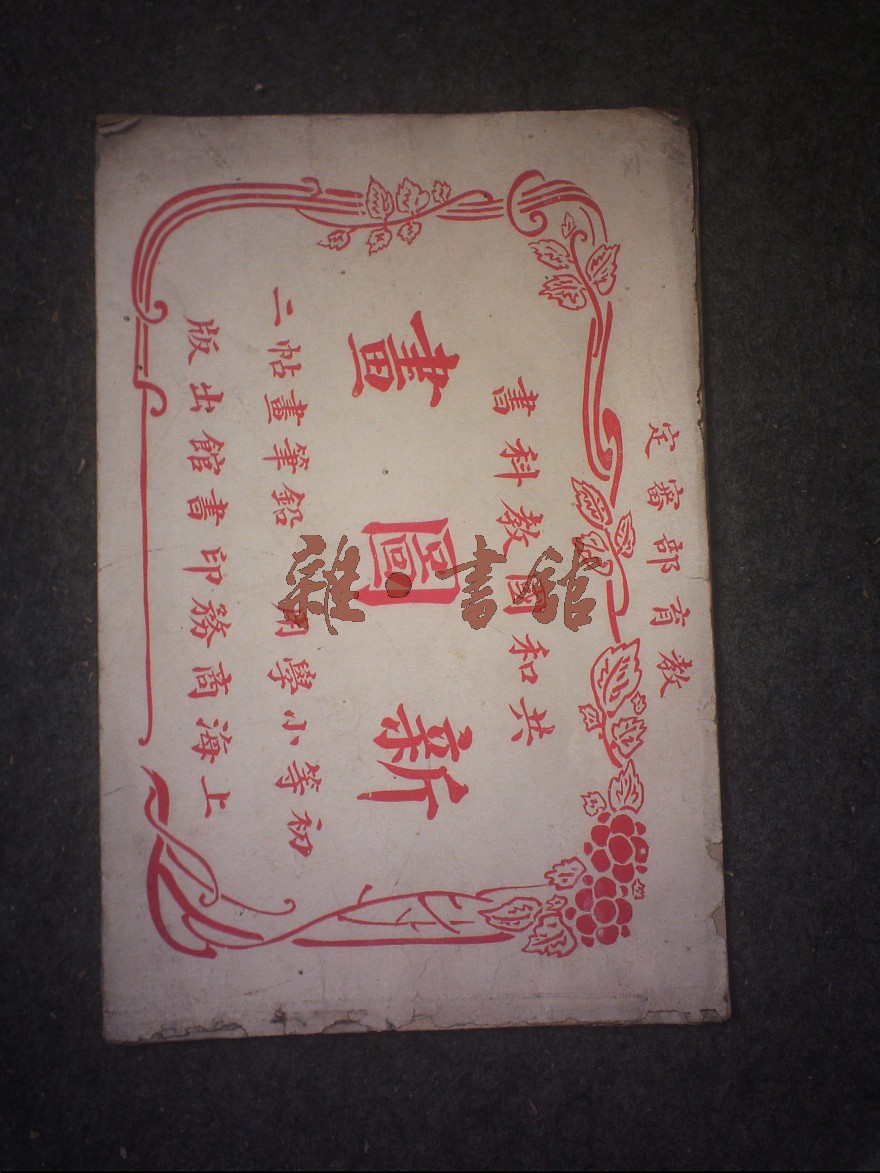 教育部審定
共和國教科書
新圖畫
初等小學用 鉛筆畫帖二
上海商務印書館出版
雜·書館